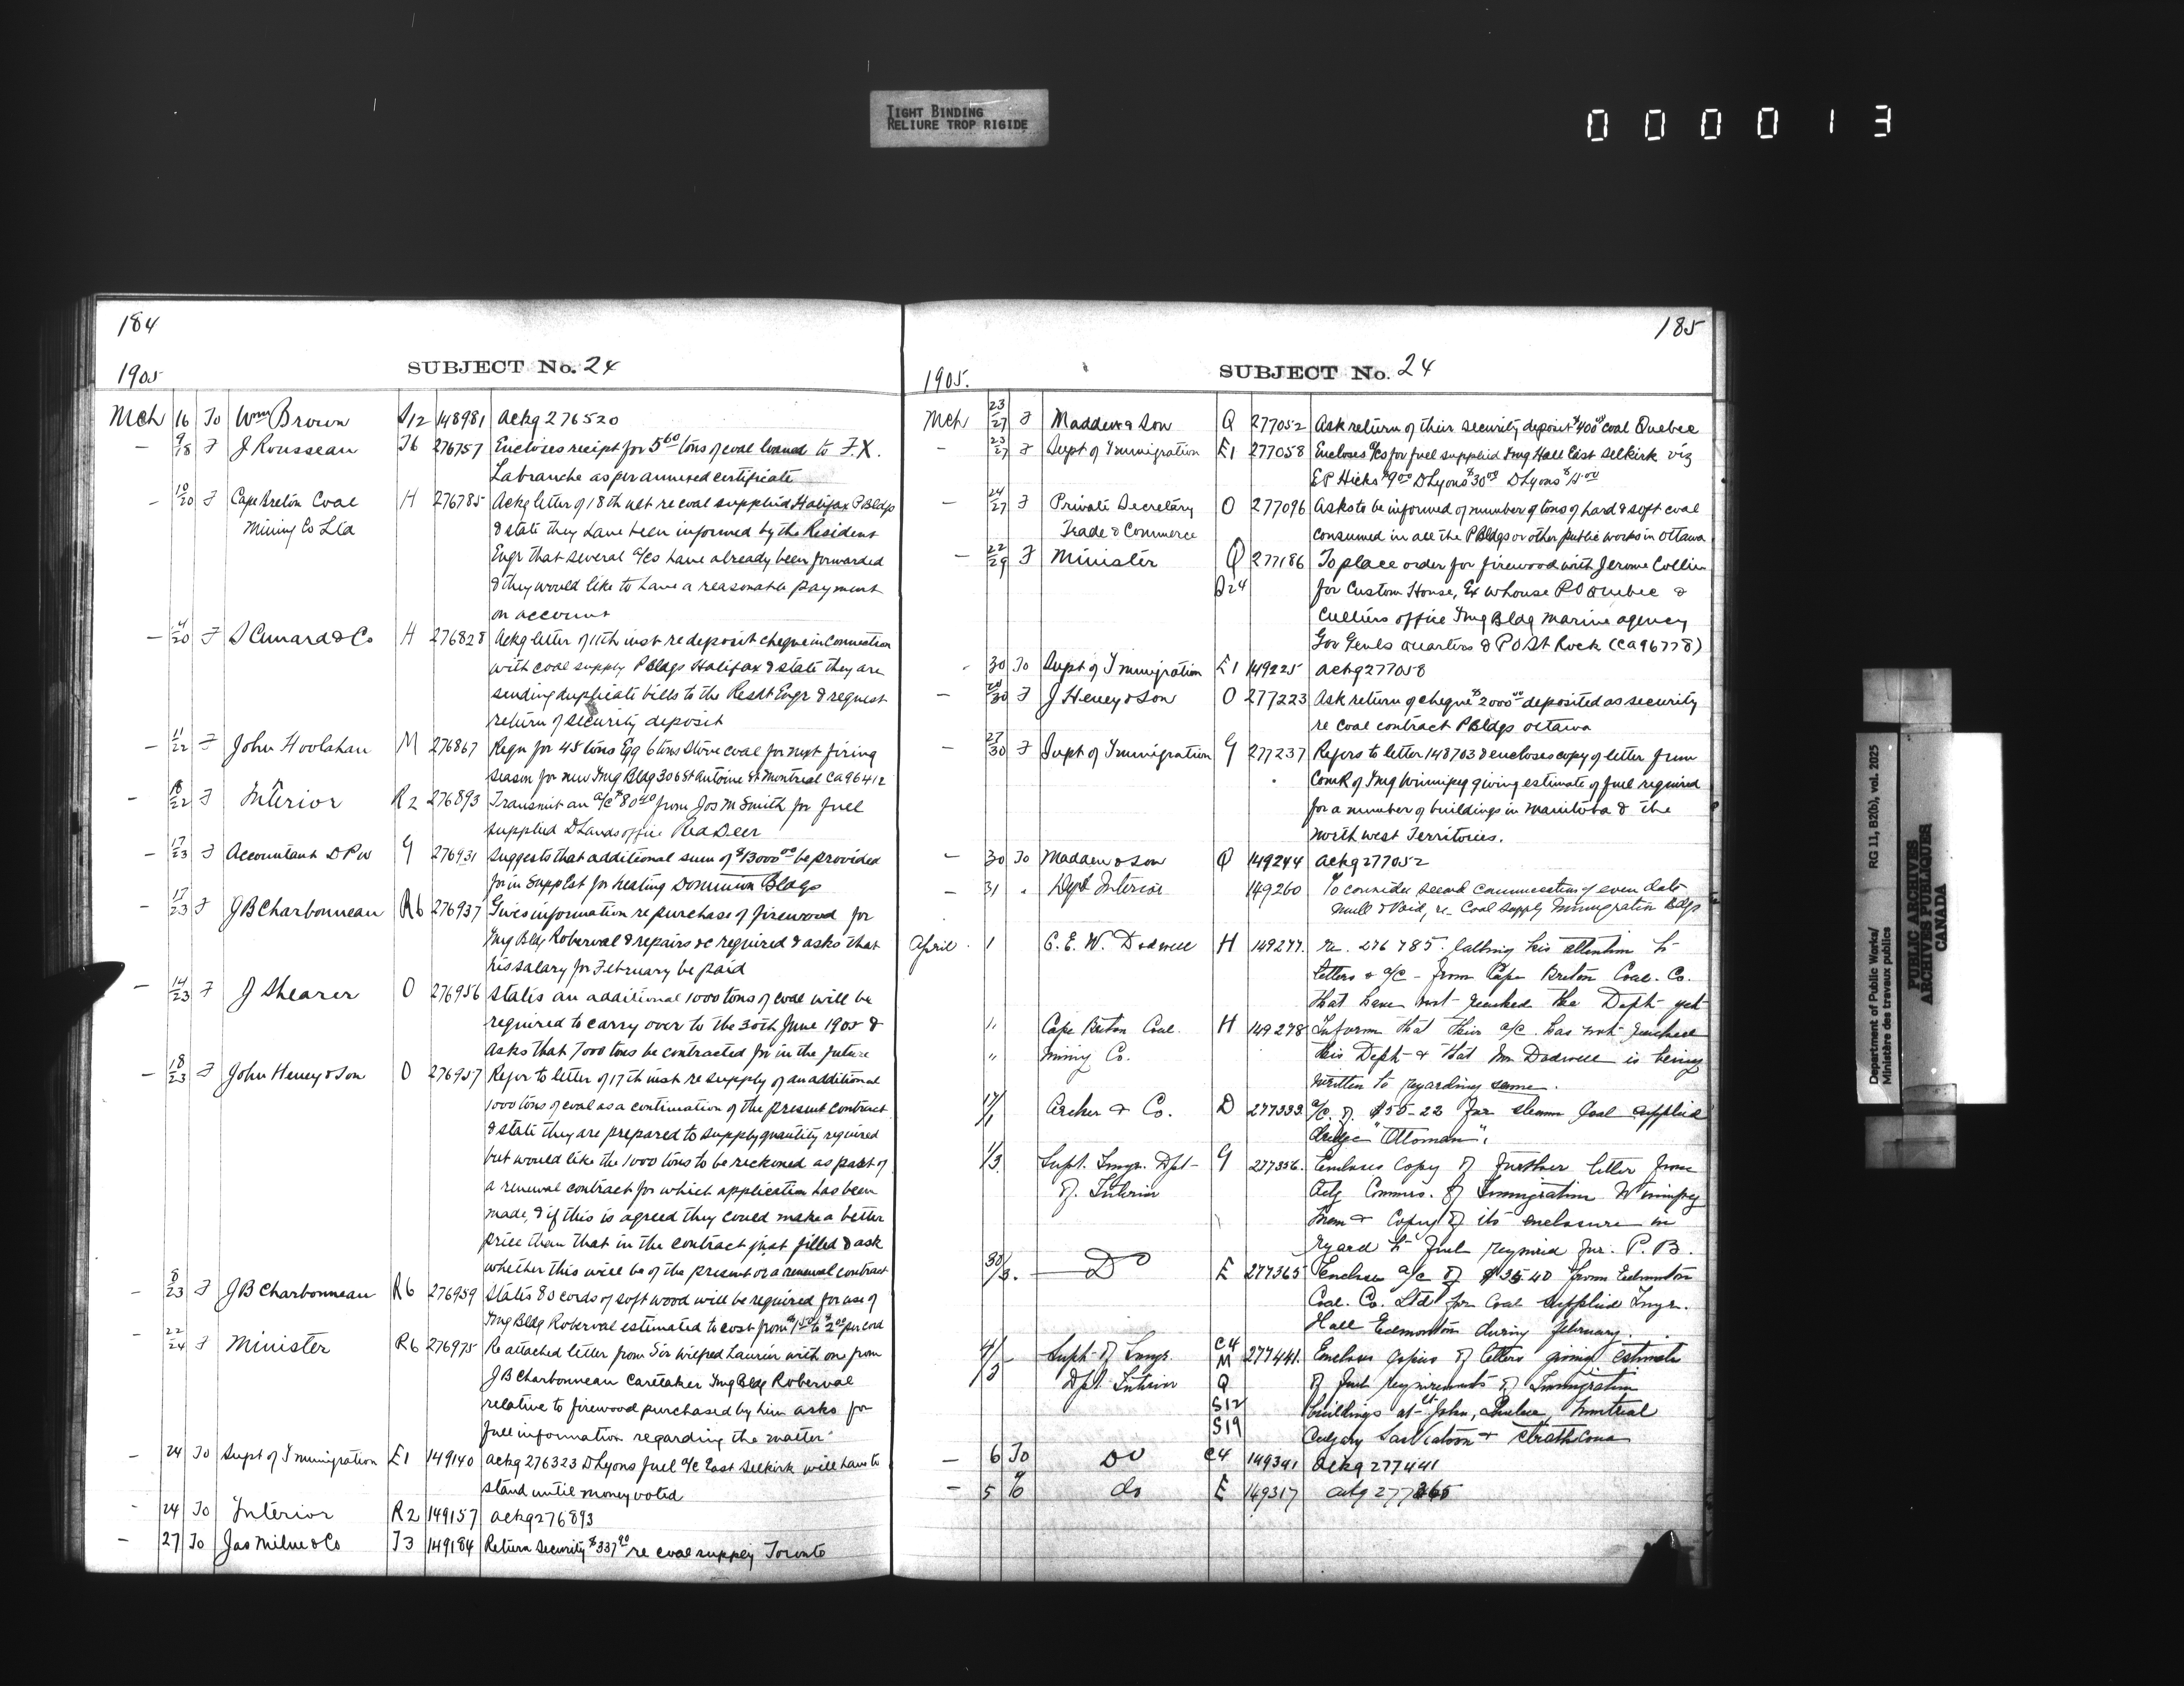 TIGHT BINDING
RELIURE TROP RIGIDE
0 0 0 0 1 3
184
1905
SUBJECT No. 24
Mch 16 To Wm Brown S12 148981 Ackg 276520
— 9/18 F J Rousseau J6 276757 Encloses receipt for 5 60 tons of coal loaned to F.X.
Labranche as per annexed certificate
— 10/20 F Cape Breton Coal H 276785 Ackg letter of 18th ult re coal supplied Halifax P Bldgs
Mining Co Ltd & state they have been informed by the Resident
Engr that several a/cs have already been forwarded
& they would like to have a reasonable payment
on account
— /20 F S Cunard & Co H 276828 Ackg letter of 11th inst re deposit cheque in connection
with coal supply P Bldgs Halifax & state they are
sending duplicate bills to the Resdt Engr & request
return of security deposit
— 11/22 F John Hoolahan M 276867 Reqn for 45 tons Egg 6 tons Stove coal for next firing
season for new Img Bldg 306 St Antoine St Montreal Ca 96412
— 18/22 F Interior R2 276893 Transmit an a/c $80 40 from Jos M Smith for fuel
supplied D Lands office Red Deer
— 17/23 F Accountant DPW G 276931 Suggests that additional sum of $13000 00 be provided
for in Supp Est for heating Dominion Bldgs
— 17/23 F J B Charbonneau R6 276937 Gives information re purchase of firewood for
Img Bldg Roberval & repairs &c required & asks that
his salary for February be paid
— 14/23 F J Shearer O 276956 States an additional 1000 tons of coal will be
required to carry over to the 30th June 1905 &
asks that 7000 tons be contracted for in the future
— 18/23 F John Heney & Son O 276957 Refer to letter of 17th inst re supply of an additional
1000 tons of coal as a continuation of the present contract
& state they are prepared to supply quantity required
but would like the 1000 tons to be reckoned as part of
a renewal contract for which application has been
made, & if this is agreed they could make a better
price than that in the contract just filled & ask
whether this will be of the present or a renewal contract
— 8/23 F J B Charbonneau R6 276959 States 80 cords of soft wood will be required for use of
Img Bldg Roberval estimated to cost from $1 50 to $2 00 per cord
— 22/24 F Minister R6 276975 Re attached letter from Sir Wilfred Laurier with on from
J B Charbonneau Caretaker Img Bldg Roberval
relative to firewood purchased by him asks for
full information regarding the matter
— 24 To Supt of Immigration E1 149140 Ackg 276323 D Lyons fuel a/c East Selkirk will have to
stand until money voted
— 24 To Interior R2 149157 Ackg 276893
— 27 To Jas Milne & Co T3 149184 Return Security $337 90 re coal supply Toronto
185
1905.
SUBJECT No. 24
Mch 23/27 F Madden & Son Q 277052 Ask return of their security deposit $400 00 coal Quebec
— 23/27 F Supt of Immigration E1 277058 Encloses a/cs for fuel supplied Img Hall East Selkirk viz
E P Hicks $9 00 D Lyons $30 00 D Lyons $
— 24/27 F Private Secretary O 277096 Asks to be informed of number of tons of hard & soft coal
Trade & Commerce consumed in all the P Bldgs or other public works in Ottawa
— 22/29 F Minister Q 277186 To place order for firewood with Jerome Collier
Q24 for Custom House, Ex Whouse P O Quebec &
Culliers office Img Bldg Marine agency
Gov Genls quarters & P O St Rock (Ca 96778)
- 30 To Supt of Immigration E1 149225 Ackg 277058
— /30 F J Heney & Son O 277223 Ask return of cheque $2000 00 deposited as security
re coal contract P Bldgs Ottawa
— 27/30 F Supt of Immigration G 277237 Refers to letter 148703 & encloses copy of letter from
ComR of Img Winnipeg giving estimate of fuel required
for a number of buildings in Manitoba & the
North west Territories.
— 30 To Madden & Son Q 149244 Ackg 277052
— 31 " Dept Interior 149260 To consider second communication of even date
null & void, re Coal supply Immigration Bldgs
April 1 C. E. W. Dodwell H 149277. re. 276785. Calling his attention to
letters & a/c – from Cape Breton Coal. Co.
that have not reached the Dept yet
" Cape Breton Coal. H 149278 Inform that their a/c. has not reached
" Mining Co. this Dept & that Mr Dodwell is being
written to regarding same.
17/1 Archer & Co. D 277333. a/c. of $55-23 for steam Coal supplied
dredge "Ottoman".
1/3 Supt. Imgn. Dpt G 277356. Encloses copy of further letter from
of. Interior Actg Commis. of Immigration Winnipeg
Mem & Copy of its enclosure in
regard to fuel required for P. B.
30/3. Do E 277365 Encloses a/c of $35 40 from Edmonton
Coal. Co. Ltd for Coal supplied Imgn.
Hall Edmonton during february.
4/5 Supt of Imgn. C4 M 277441. Encloses copies of letters giving estimate
Dpt. Interior Q of fuel requirements of Immigration
S12 buildings at St John, Quebec, Montreal
S19 Calgary Saskatoon & Strathcona
— 6 To Do C4 149391 Ackg 277441
— 5 To do E 149317 ackg 277365
Department of Public Works/
Ministère des travaux publics
RG 11, B2(b), vol. 2025
PUBLIC ARCHIVES
ARCHIVES PUBLIQUES
CANADA